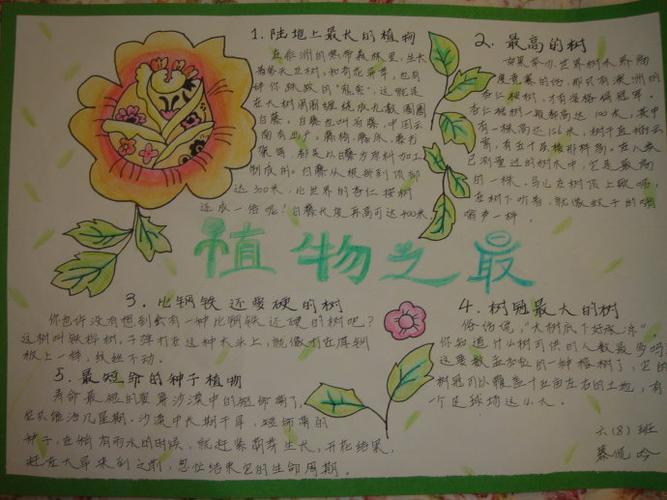 1.陆地上最长的植物
在非洲的热带森林里,生长
着参天巨树和奇花异草,也有
绊你跌跤的"鬼索",这就是
在大树周围缠绕成无数圈圈
白藤。白藤也叫省藤,中国云
南有出产。藤椅、藤床、藤
等,都是以白藤为原料加工
制成的。白藤从根部到顶部
达300米,比世界的杏仁桉树
还长一倍呢!白藤长度最高可达400米。
2.最高的树
如果举办世界树木界高
度竞赛的话,那只有澳洲的
杏仁桉树,才有资格得冠军。
杏仁桉树一般都高达100米,其中
有一株高达156米,树干直插云
霄,有五十层楼那样高。在人类
已测量过的树木中,它是最高
的一株。鸟儿在树顶上歌唱,
在树下听起,就像蚊子的嗡
嗡声一样。
植物之最
3.比钢铁还要硬的树
你也许没有想到会有一种比钢铁还硬的树吧?
这树叫铁桦树。子弹打在这种大木上,就像打在厚钢
板上一样,纹丝不动。
4.树冠最大的树
俗话说,"大树底下好乘凉"。
你知道什么树可供的人数最多吗?
这要数孟加拉的一种榕树了,它的
树冠可以覆盖十五亩左右的土地,有
一个足球场这么大。
5.最短命的种子植物
寿命最短的要算沙漠中的短命菊了,
它只能活几星期。沙漠中长期干旱,短命菊的
种子,在稍有雨水的时候,就赶紧萌芽生长,开花结果,
赶在大旱来到之前,匆忙结束它的生命周期。
六(8)班